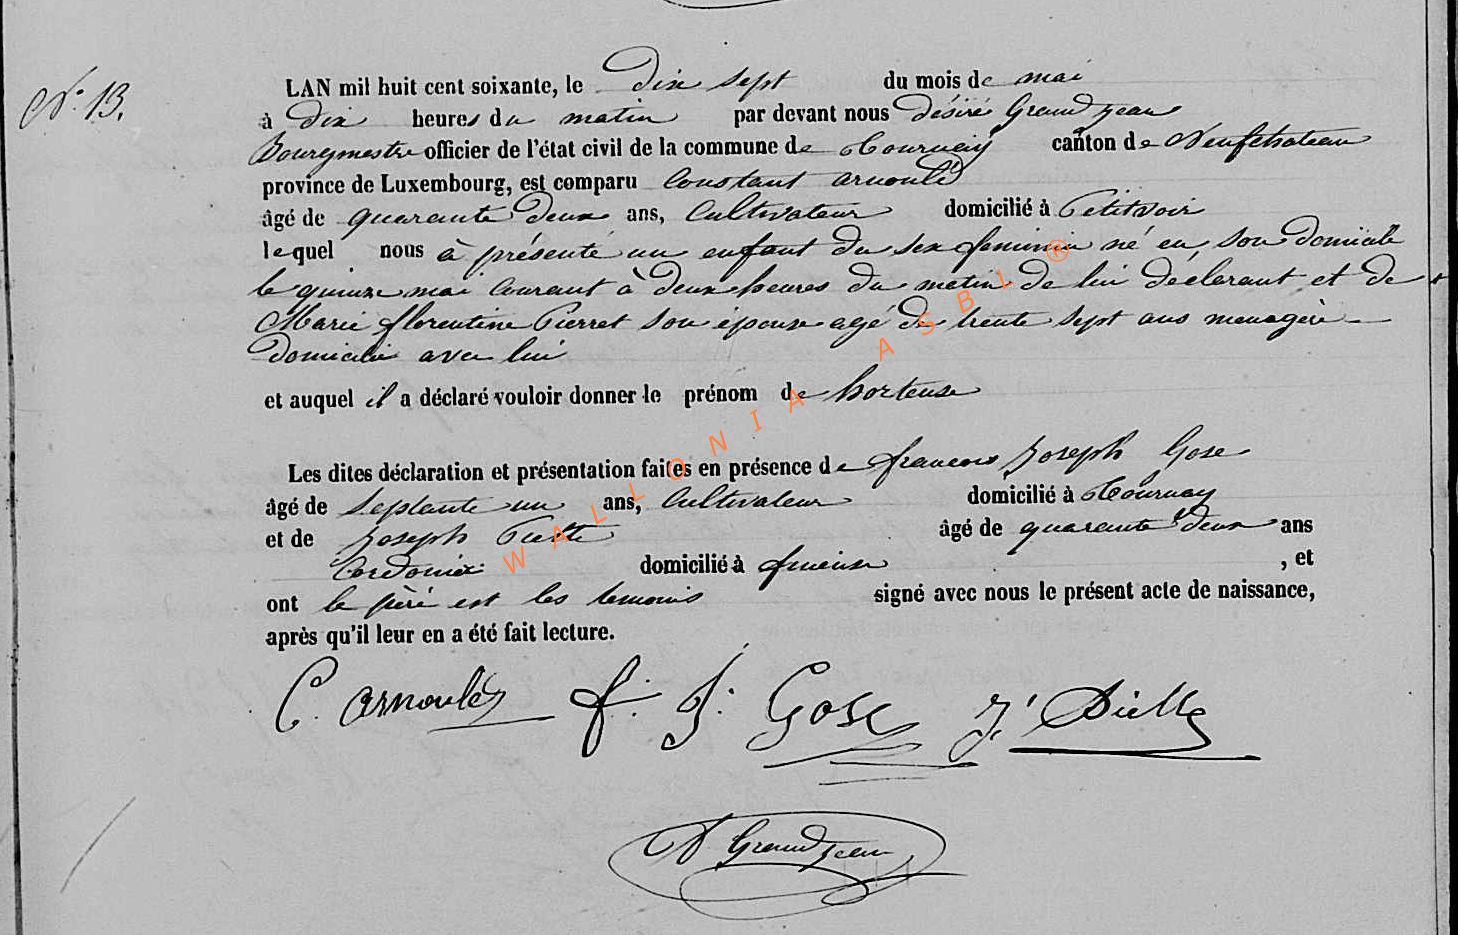 N° 13.
LAN mil huit cent soixante, le dix sept du mois de mai
à dix heures du matin par devant nous désiré Grandjean
Bourgmestre officier de l'état civil de la commune de Tournay canton de Neufchateau
province de Luxembourg, est comparu Constant arnould
âgé de quarante deux ans, Cultivateur domicilié à Petitvoir
lequel nous à présenté un enfant du sex feminin né en son domicile
le quinze mai courant à deux heures du matin de lui déclarant et de
Marie florentine Pierret son épouse agé de trente sept ans menagère
domicilié avec lui
et auquel il a déclaré vouloir donner le prénom de hortense
Les dites déclaration et présentation faites en présence de francois Joseph Gose
âgé de septante un ans, Cultivateur domicilié à Tournay
et de Joseph âgé de quarante deux ans
domicilié à , et
ont le père est les temoins signé avec nous le présent acte de naissance,
après qu'il leur en a été fait lecture.
C. Arnould f. J. Gose J.
D Grandjean
WALLONIA ASBL ®